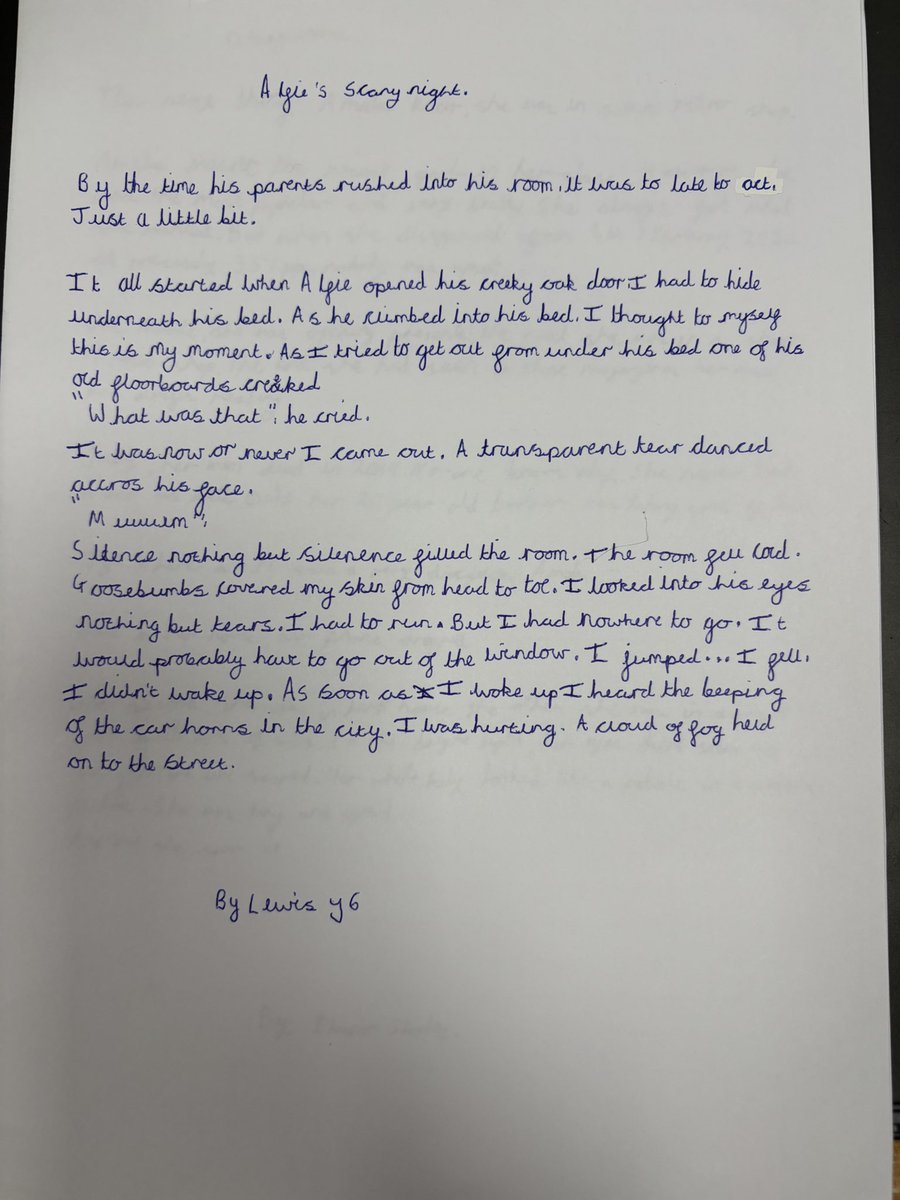 Algie's Scary night.
By the time his parents rushed into his room, it was to late to act.
Just a little bit.
It all started when Algie opened his creeky oak door I had to hide
underneath his bed. As he climbed into his bed. I thought to myself
this is my moment. As I tried to get out from under his bed one of his
old floorboards creaked
"What was that", he cried.
It was now or never I came out. A transparent tear danced
accros his face.
"Muuuum",
Silence nothing but silenence filled the room. The room fell cold.
Goosebumbs covered my skin from head to toe. I looked into his eyes
nothing but tears. I had to run. But I had nowhere to go. It
would probably have to go out of the window. I jumped... I fell.
I didn't wake up. As soon as I woke up I heard the beeping
of the car horns in the city. I was hurting. A cloud of fog held
on to the street.
By Lewis y6